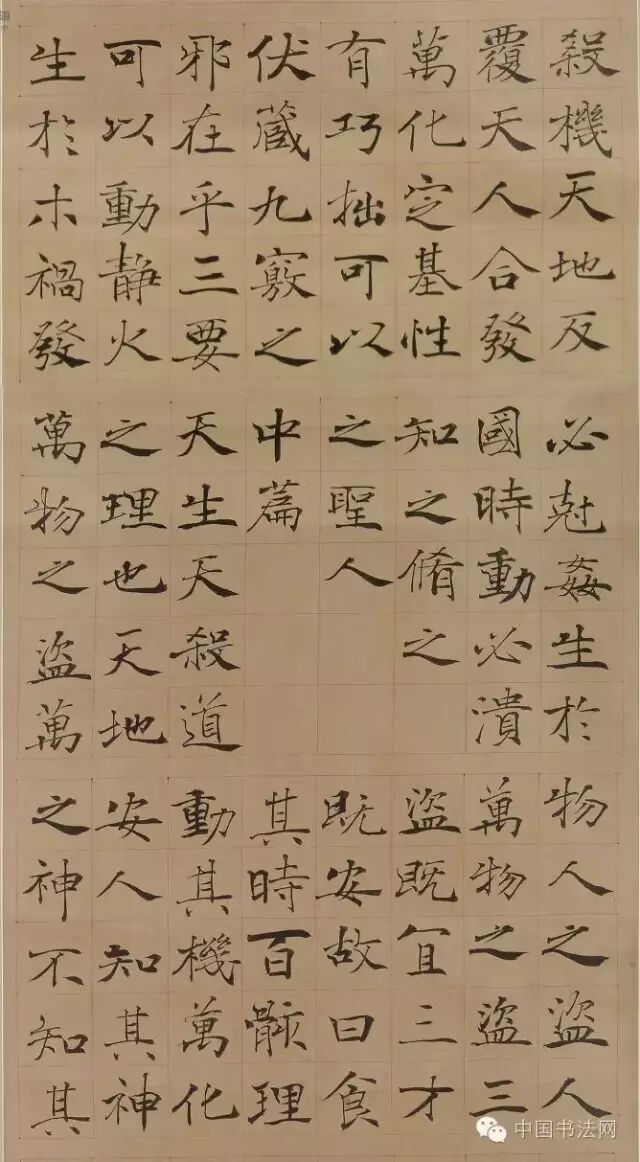 殺機天地反
覆天人合發
萬化定基性
有巧拙可以
伏藏九竅之
邪在乎三要
可以動靜火
生於木禍發
必尅姦生於
國時動必潰
知之脩之
之聖人
中篇
天生天殺道
之理也天地
萬物之盜萬
物人之盜人
萬物之盜三
盜既宜三才
既安故曰食
其時百骸理
動其機萬化
安人知其神
之神不知其
中国书法网